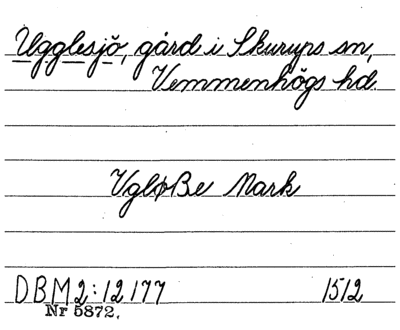 Ugglesjö, gård i Skurups sn,
Vemmenhögs hd.
VgløBe Mark
DBM2:12177 1512
Nr 5872.